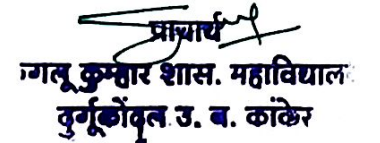 प्राचार्य
गलू कुम्हार शास. महाविद्याल
दुर्गूकोंदल उ. ब. कांकेर